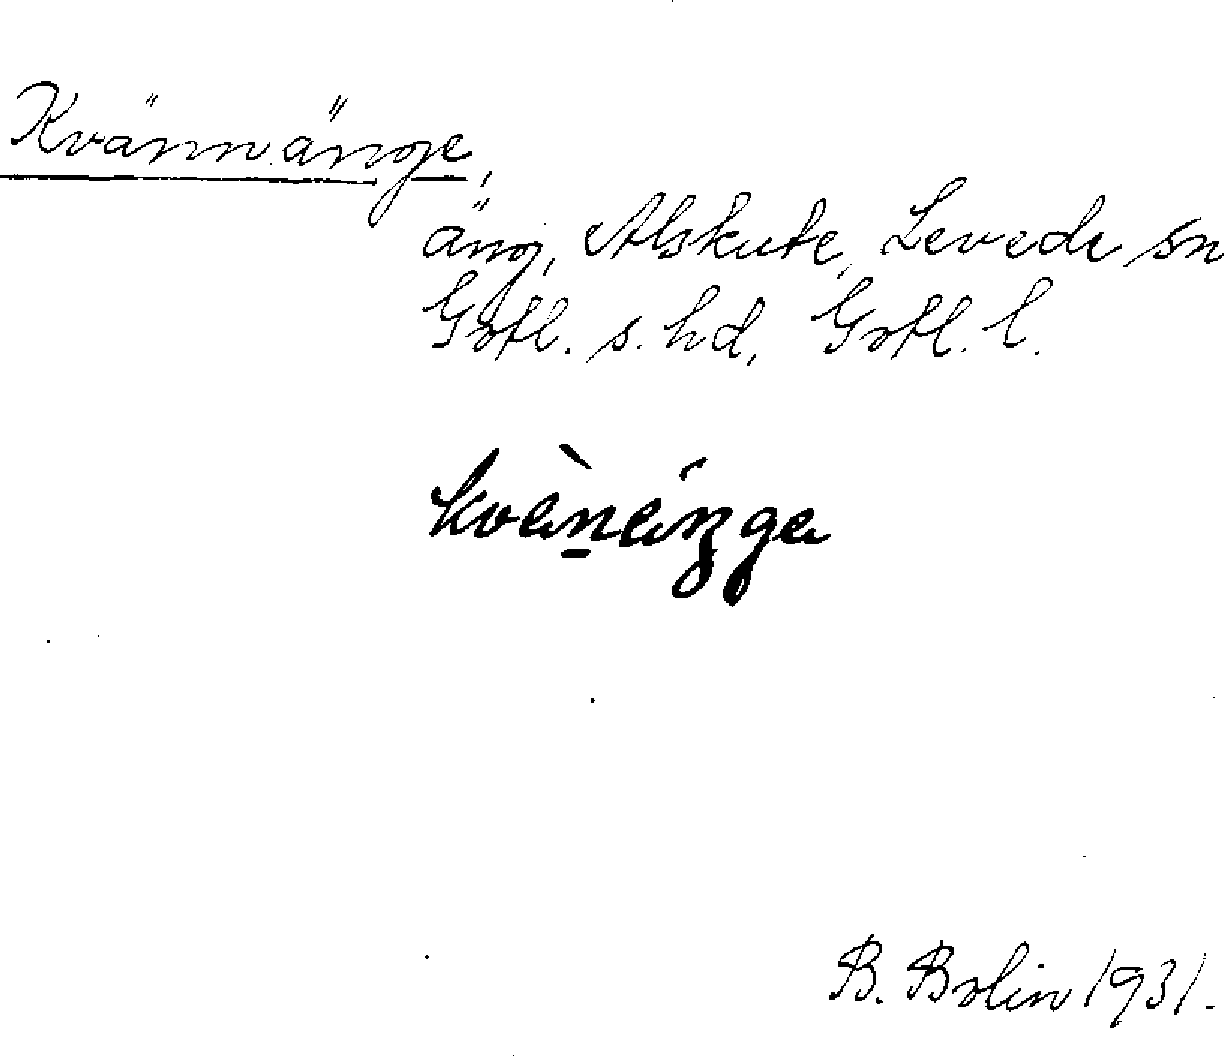 Kvännänge,
äng, Alskute, Levede sn
Gotl. s. hd, Gotl. l.
B. Bolin 1931.